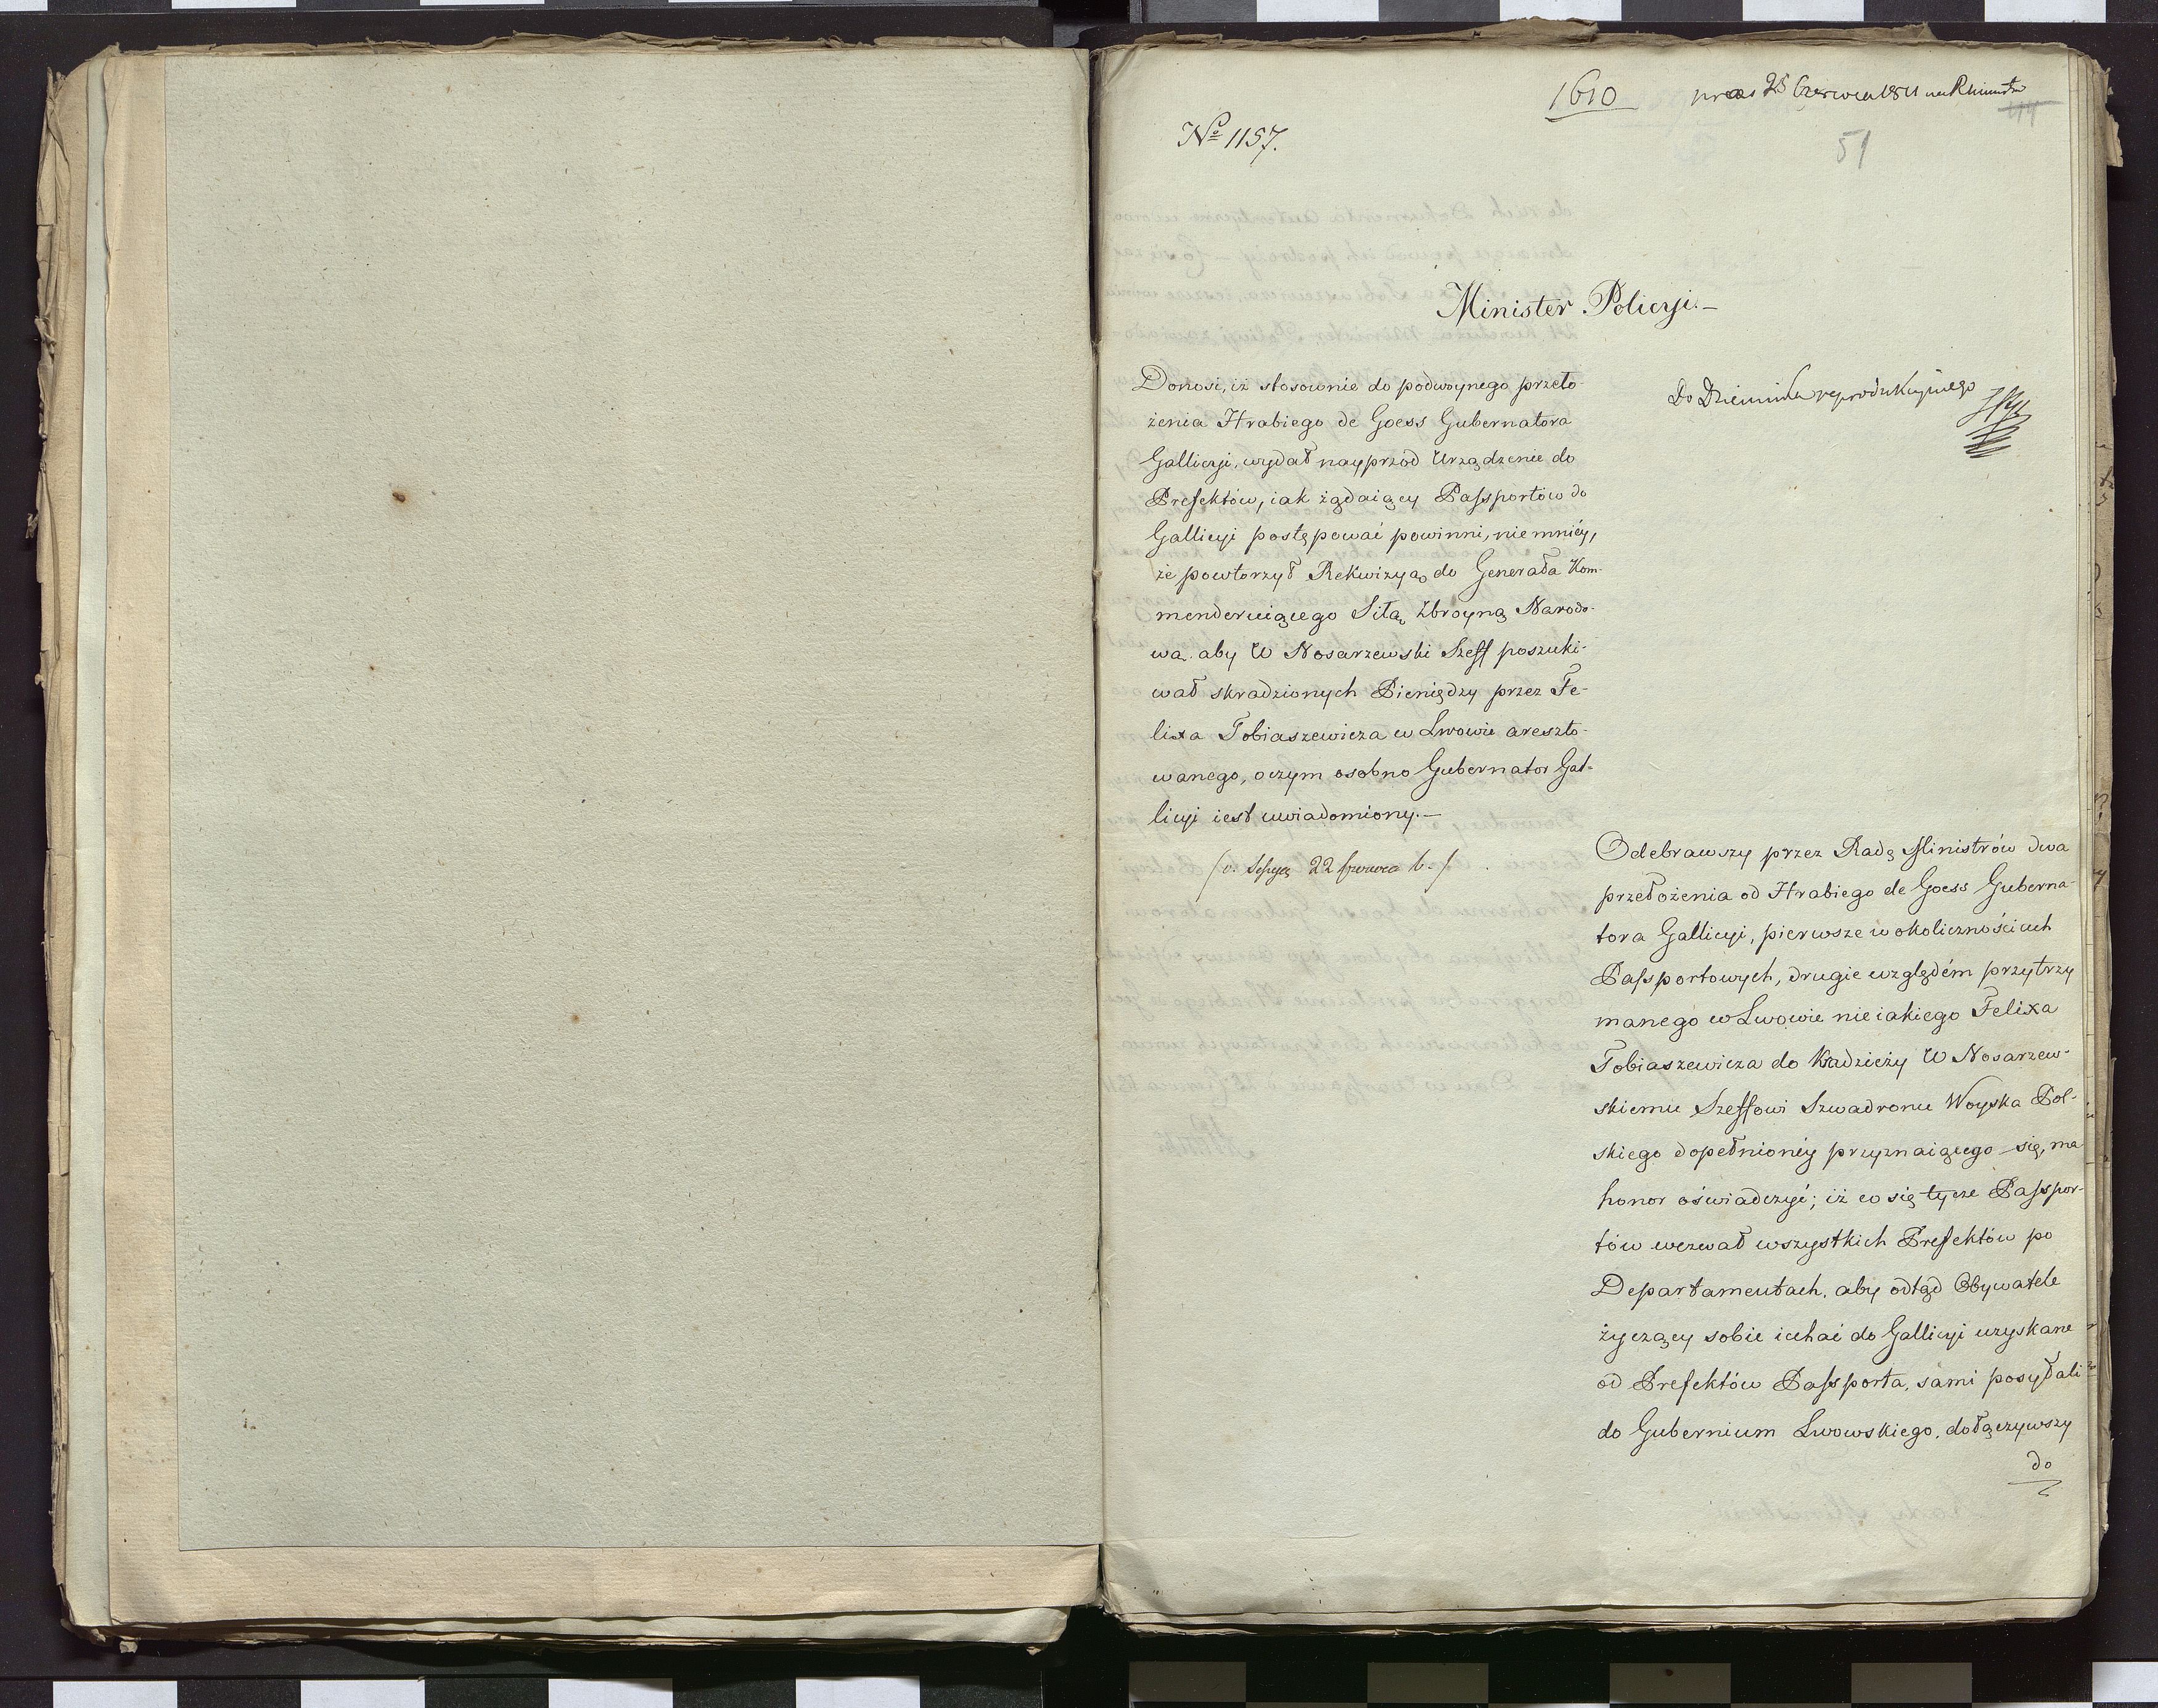 1610
praes 25 Czerwca 1811 na R Ministrów
44
51
No 1157.
Minister Policyi.–
Donosi, iż stosownie do podwoynego przeło-
żenia Hrabiego de Goess Gubernatora
Gallicyi, wydał nayprzód Urządzenie do
Prefektów, iak żądaiący Passportów do
Gallicyi postępować powinni, niemniéy,
że powtorzył Rekwizycyą do Generała Kom-
menderuiącego Siłą Zbroyną Narodo-
wą. aby W Nosarzewski Szeff poszuki-
wał skradzionych Pieniędzy przez Fe-
lixa Tobiaszewicza w Lwowie areszto-
wanego, oczym osobno Gubernator Gal-
licyi iest uwiadomiony.–
/ v. Sessyę 22 Czerwca b. /
Do Dziennika reprodukcyinego
Odebrawszy przez Radę Ministrów dwa
przełożenia od Hrabiego de Goess Guberna-
tora Gallicyi, pierwsze w okolicznościach
Passportowych, drugie względém przytrzy
manego w Lwowie nieiakiego Felixa
Tobiaszewicza do Kradzieży W Nosarzew-
skiemu Szeffowi Szwadronu Woyska Pol-
skiego dopełnionéy przyznaiącego się, ma
honor oświadczyć; iż co się tycze Passpor-
tów wezwał wszystkich Prefektów po
Departamentach, aby odtąd Obywatele
życzący sobie iechać do Gallicyi uzyskane
od Prefektów Passporta, sami posyłali
do Gubernium Lwowskiego, dołączywszy
do